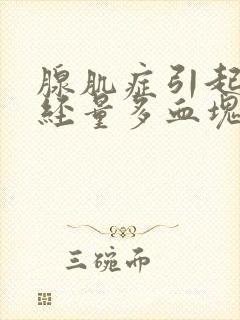 腺肌症引起
经量多血块
三碗而